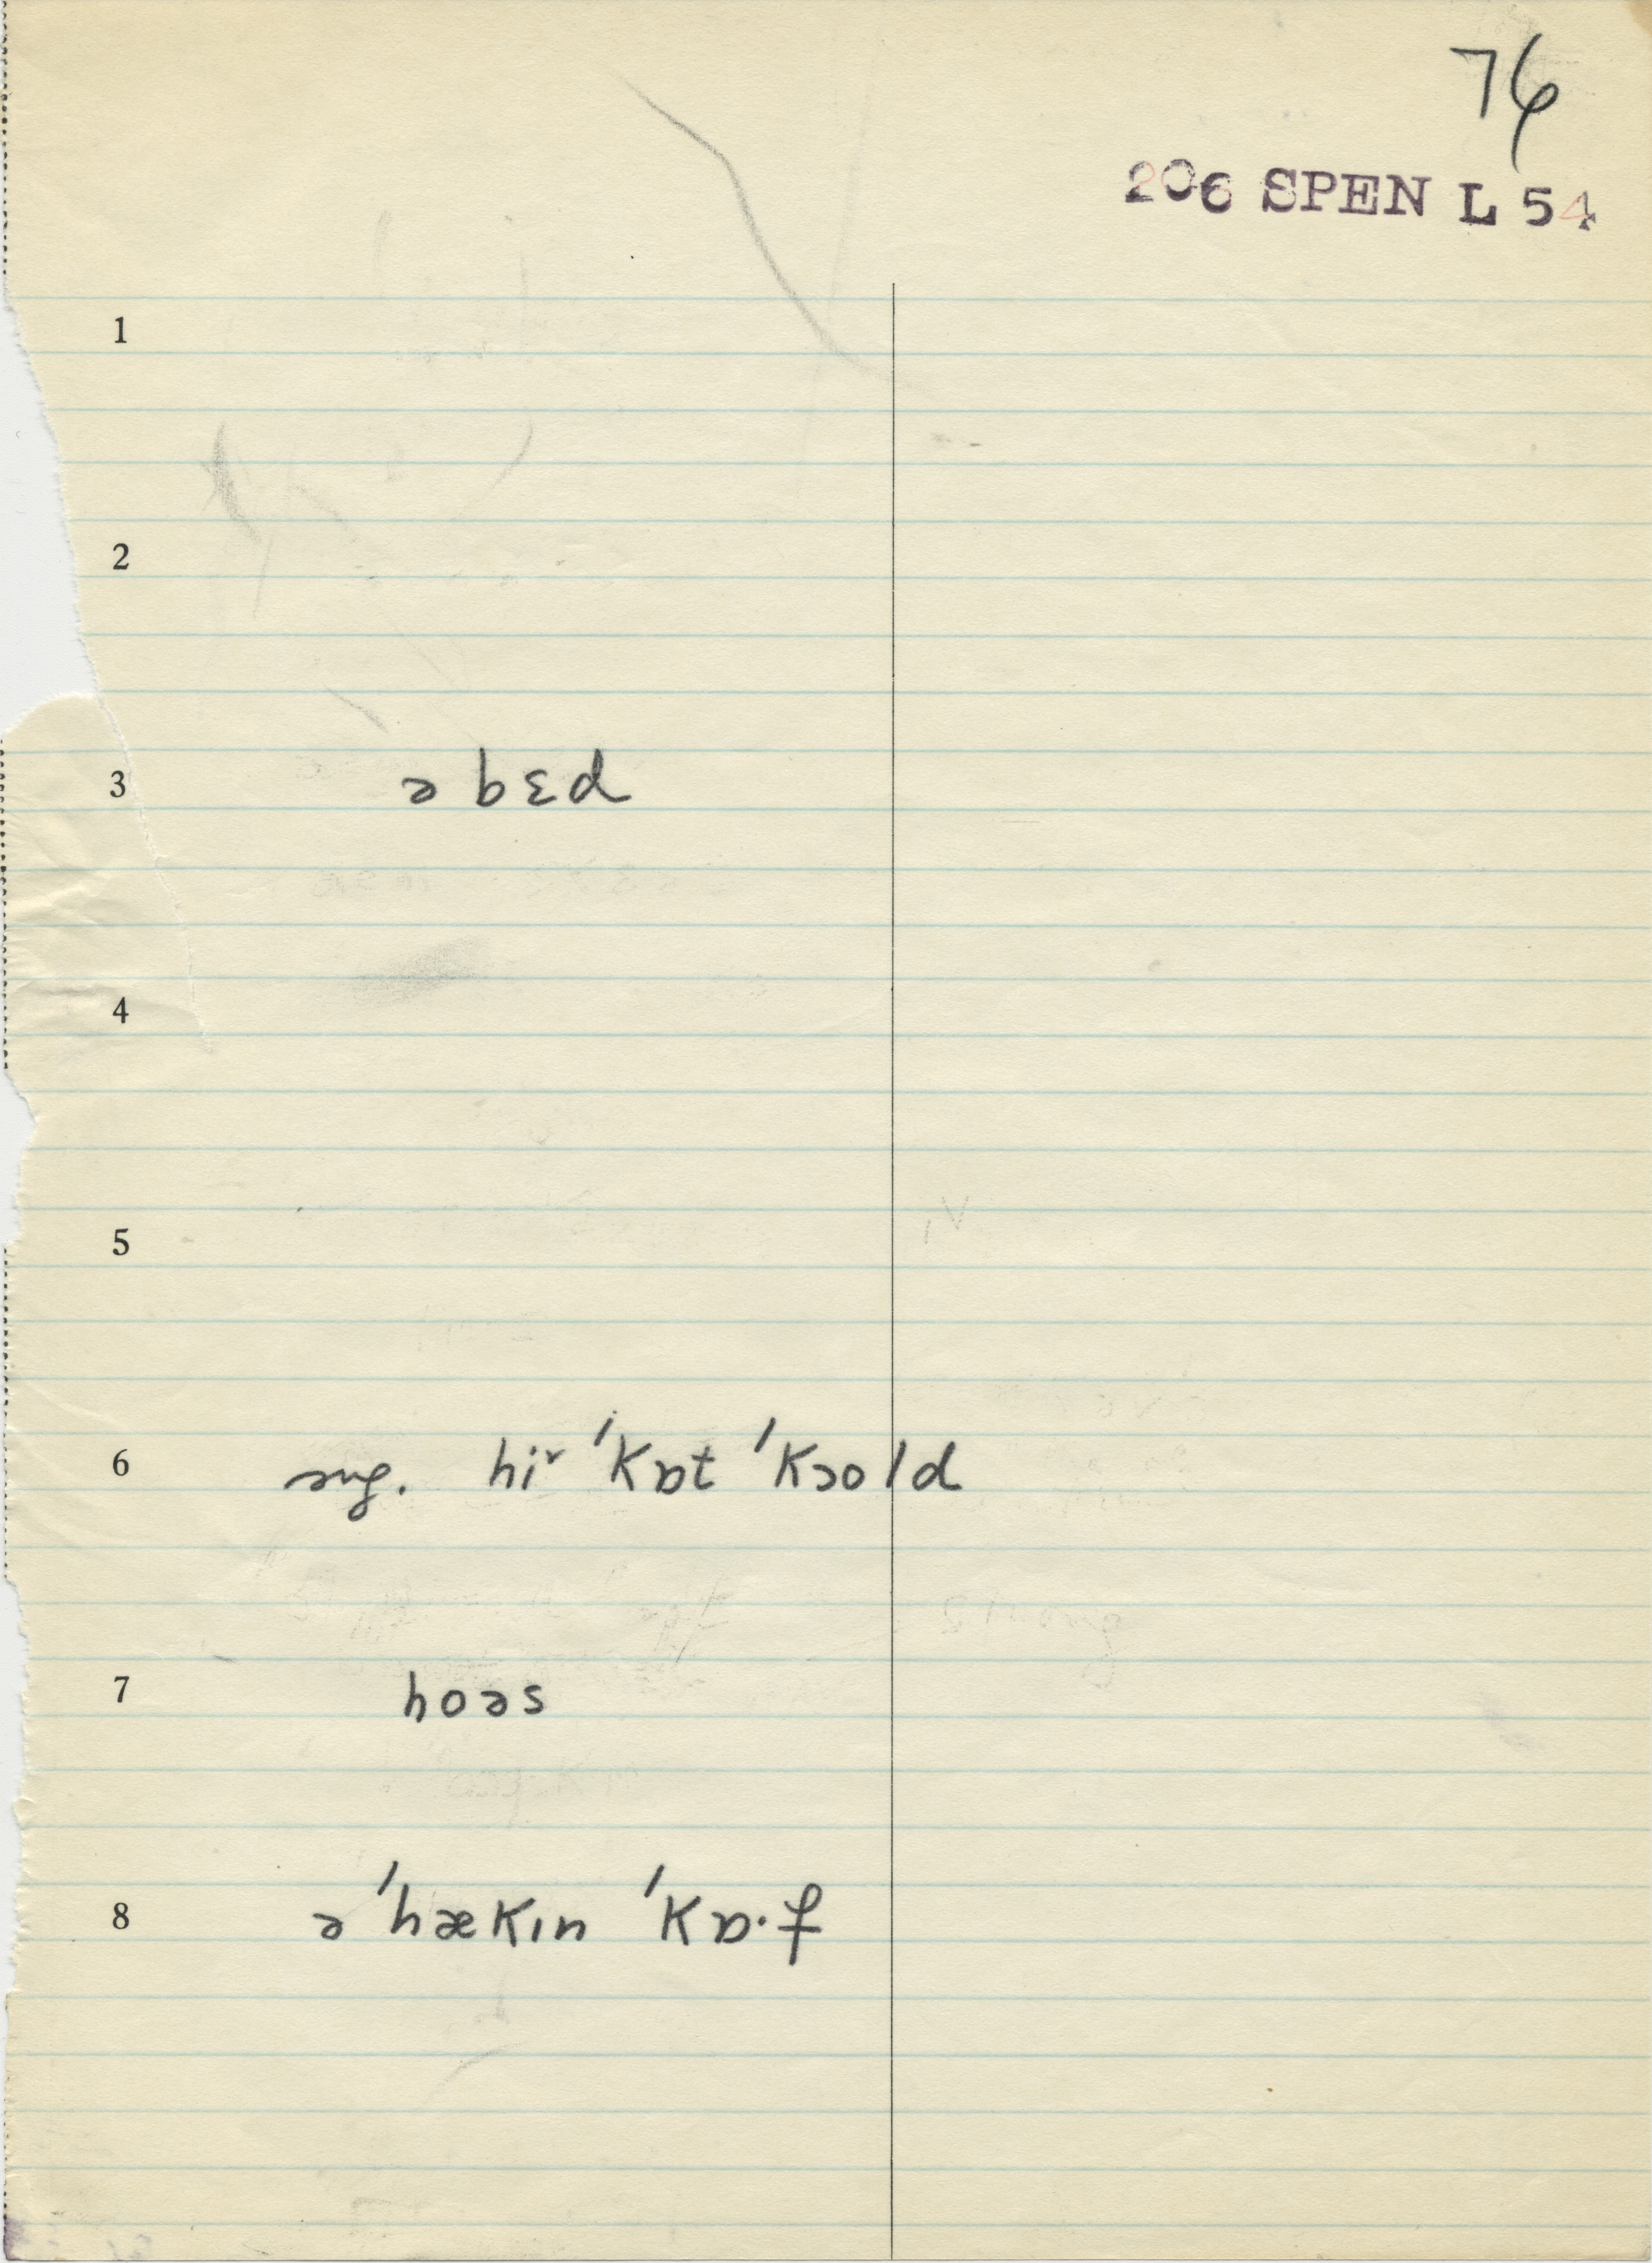 76
206 SPEN L 54
1
2
3 ə bɛd
4
5
6 sug. hi˞ ˈkɒt ˈkɔold
7 hoəs
8 ə ˈhækɪn ˈkɒ·f